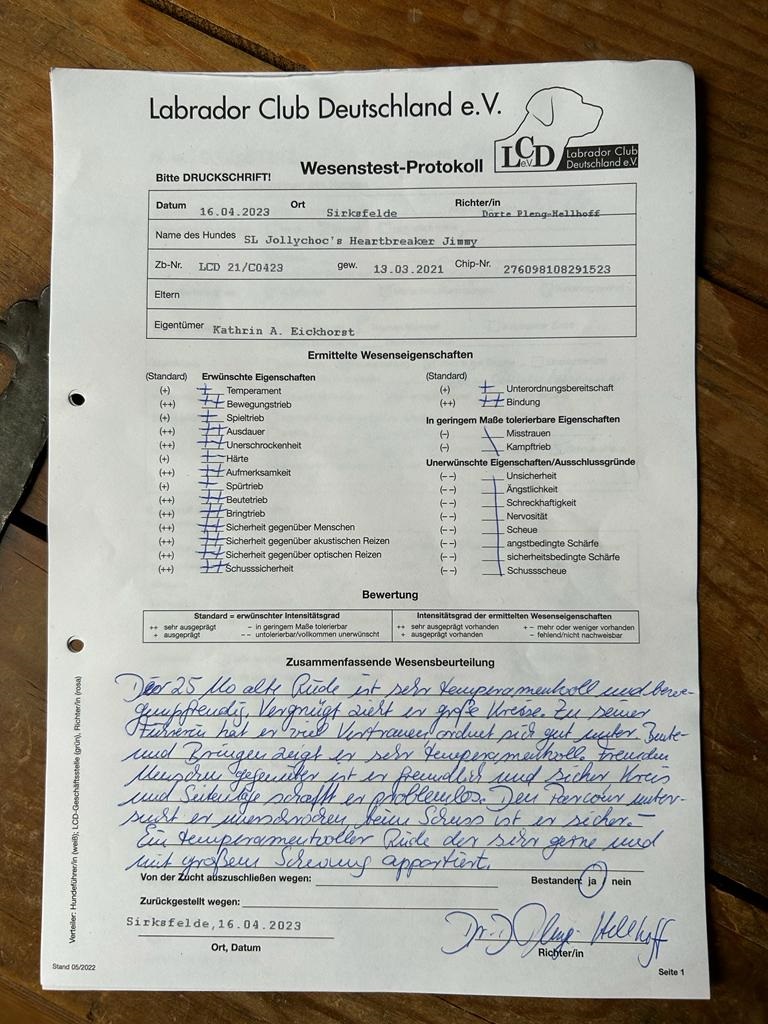 Labrador Club Deutschland e.V.
LCD e.V. Labrador Club Deutschland e.V.
Bitte DRUCKSCHRIFT! Wesenstest-Protokoll
Datum 16.04.2023 Ort Sirksfelde Richter/in Dorte Pleng-Hellhoff
Name des Hundes SL Jollychoc's Heartbreaker Jimmy
Zb-Nr. LCD 21/C0423 gew. 13.03.2021 Chip-Nr. 276098108291523
Eltern
Eigentümer Kathrin A. Eickhorst
Ermittelte Wesenseigenschaften
(Standard) Erwünschte Eigenschaften
(+) + Temperament
(++) ++ Bewegungstrieb
(+) + Spieltrieb
(++) ++ Ausdauer
(++) ++ Unerschrockenheit
(+) + Härte
(++) ++ Aufmerksamkeit
(+) + Spürtrieb
(++) ++ Beutetrieb
(++) ++ Bringtrieb
(++) ++ Sicherheit gegenüber Menschen
(++) ++ Sicherheit gegenüber akustischen Reizen
(++) ++ Sicherheit gegenüber optischen Reizen
(++) ++ Schusssicherheit
(Standard)
(+) + Unterordnungsbereitschaft
(++) ++ Bindung
In geringem Maße tolerierbare Eigenschaften
(–) Misstrauen
(–) Kampftrieb
Unerwünschte Eigenschaften/Ausschlussgründe
(– –) Unsicherheit
(– –) Ängstlichkeit
(– –) Schreckhaftigkeit
(– –) Nervosität
(– –) Scheue
(– –) angstbedingte Schärfe
(– –) sicherheitsbedingte Schärfe
(– –) Schussscheue
Bewertung
Standard = erwünschter Intensitätsgrad
++ sehr ausgeprägt – in geringem Maße tolerierbar
+ ausgeprägt – – untolerierbar/vollkommen unerwünscht
Intensitätsgrad der ermittelten Wesenseigenschaften
++ sehr ausgeprägt vorhanden + – mehr oder weniger vorhanden
+ ausgeprägt vorhanden – fehlend/nicht nachweisbar
Zusammenfassende Wesensbeurteilung
Der 25 Mo alte Rüde ist sehr temperamentvoll und bewe-
gungsfreudig. Vergnügt zieht er große Kreise. Zu seiner
Führerin hat er viel Vertrauen ordnet sich gut unter. Beute-
und Bringen zeigt er sehr temperamentvoll. Fremden
Menschen gegenüber ist er freundlich und sicher Kreis
und Seitenlage schafft er problemlos. Den Parcour unter-
sucht er unerschrocken beim Schuss ist er sicher.–
Ein temperamentvoller Rüde der sehr gerne und
mit großem Schwung apportiert.
Von der Zucht auszuschließen wegen: Bestanden: ja / nein
Zurückgestellt wegen:
Sirksfelde,16.04.2023 Dr. D Pleng-Hellhoff
Ort, Datum Richter/in
Stand 05/2022 Seite 1
Verteiler: Hundeführer/in (weiß); LCD-Geschäftsstelle (grün), Richter/in (rosa)